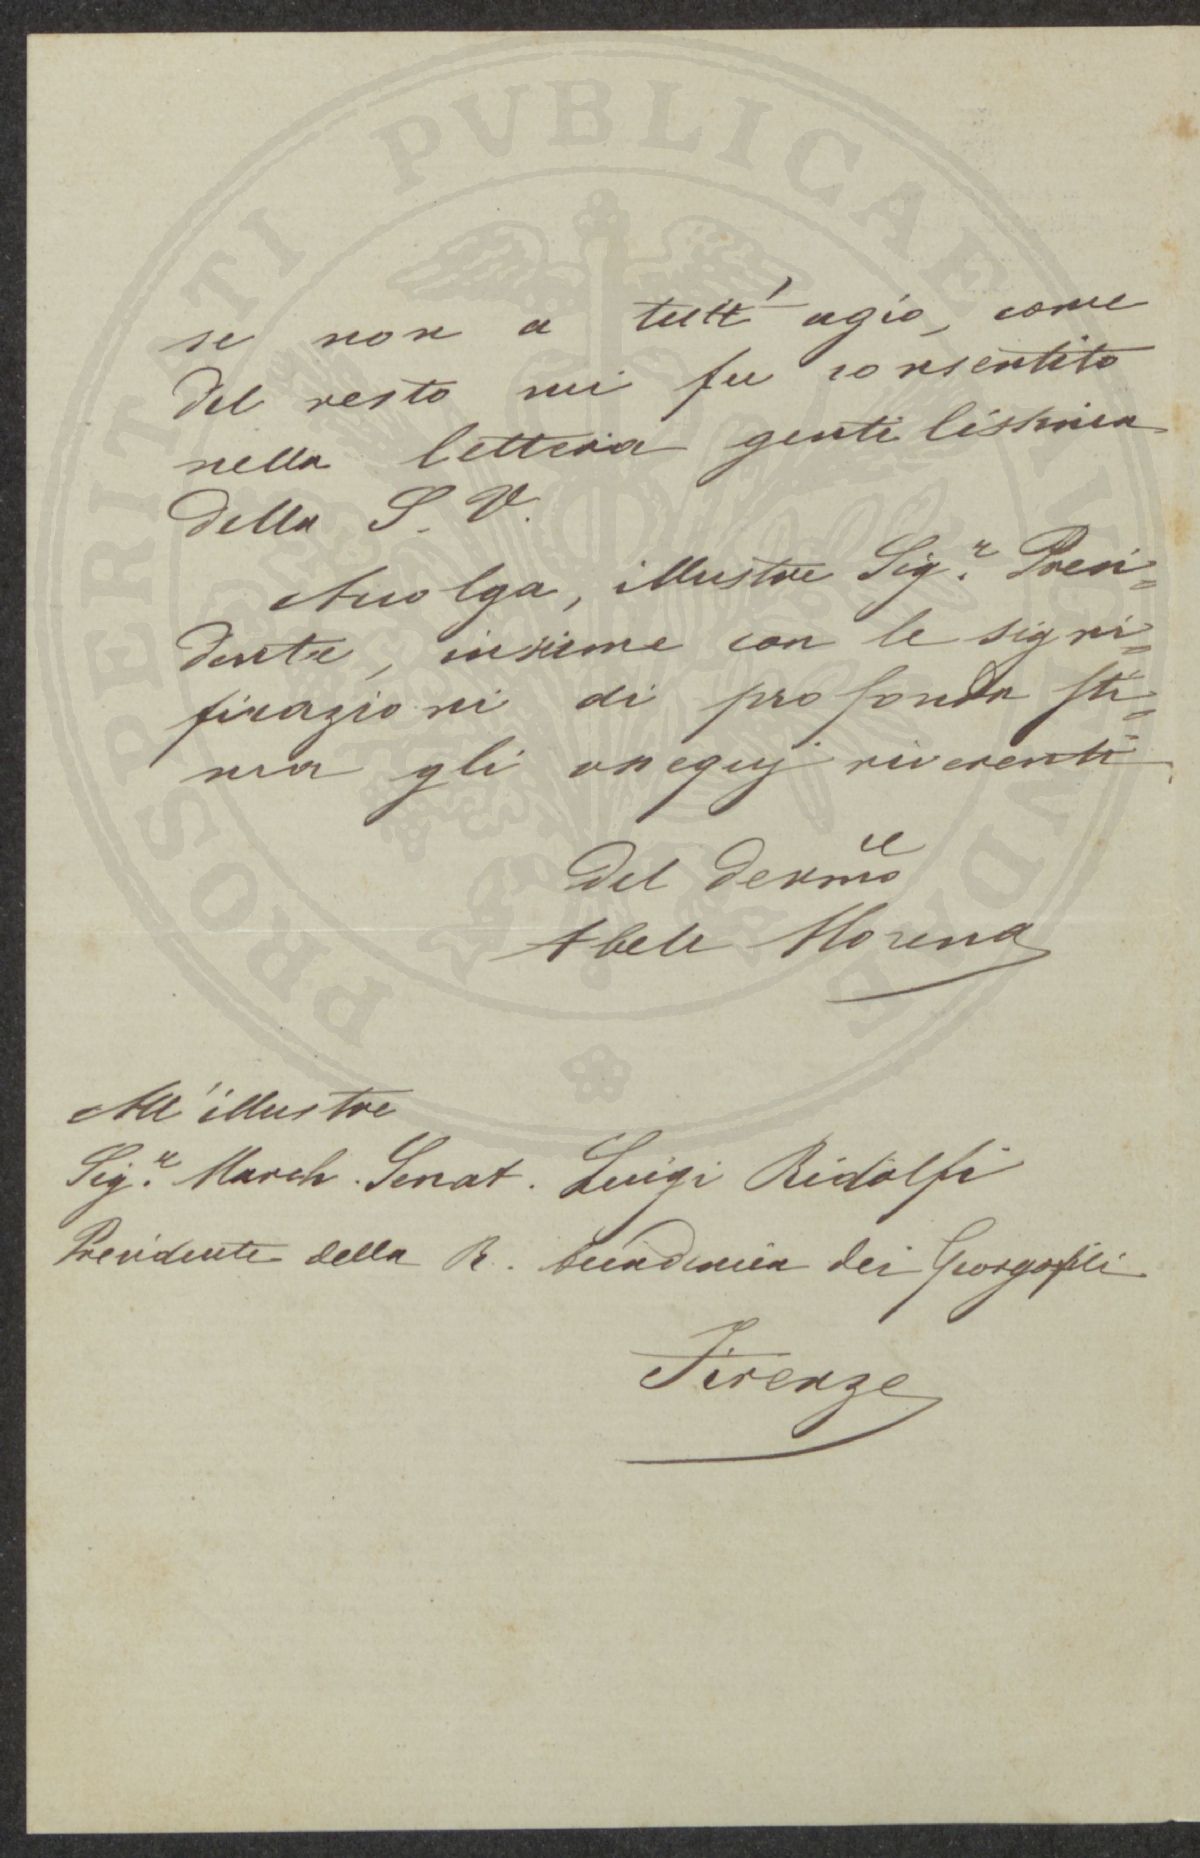 se non a tutt' agio, come
del resto mi fu consentito
nella lettera gentilissima
della S. V.
Accolga, illustre Sig.r Presi=
dente, insieme con le signi=
ficazioni di profonda sti=
ma gli ossequj riverenti
del
Abele Morena
All'illustre
Sig.r March. Senat. Luigi Ridolfi
Presidente della R. Accademia dei Georgofili
Firenze
PROSPERITATI PUBLICAE AUGENDAE